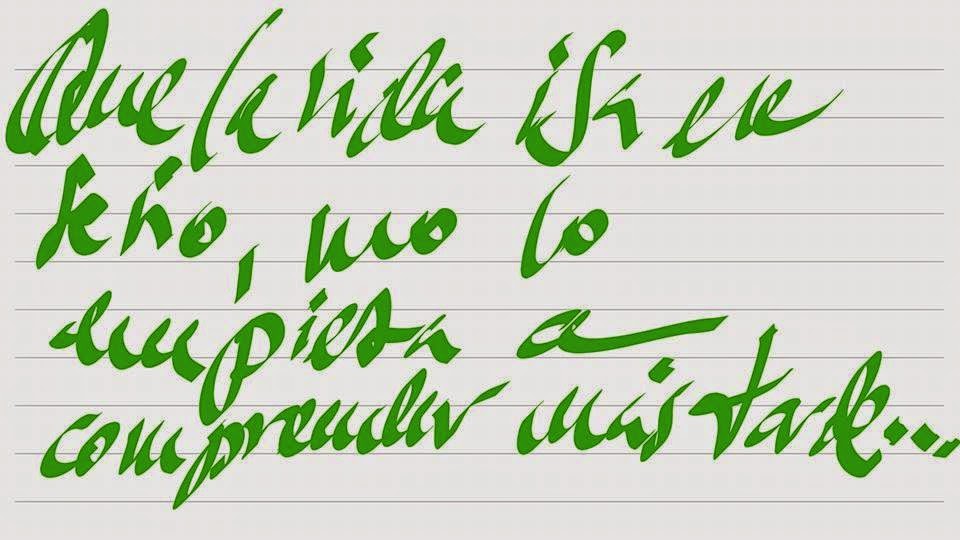 Que la vida iba en
serio, uno lo
empieza a
comprender más tarde...